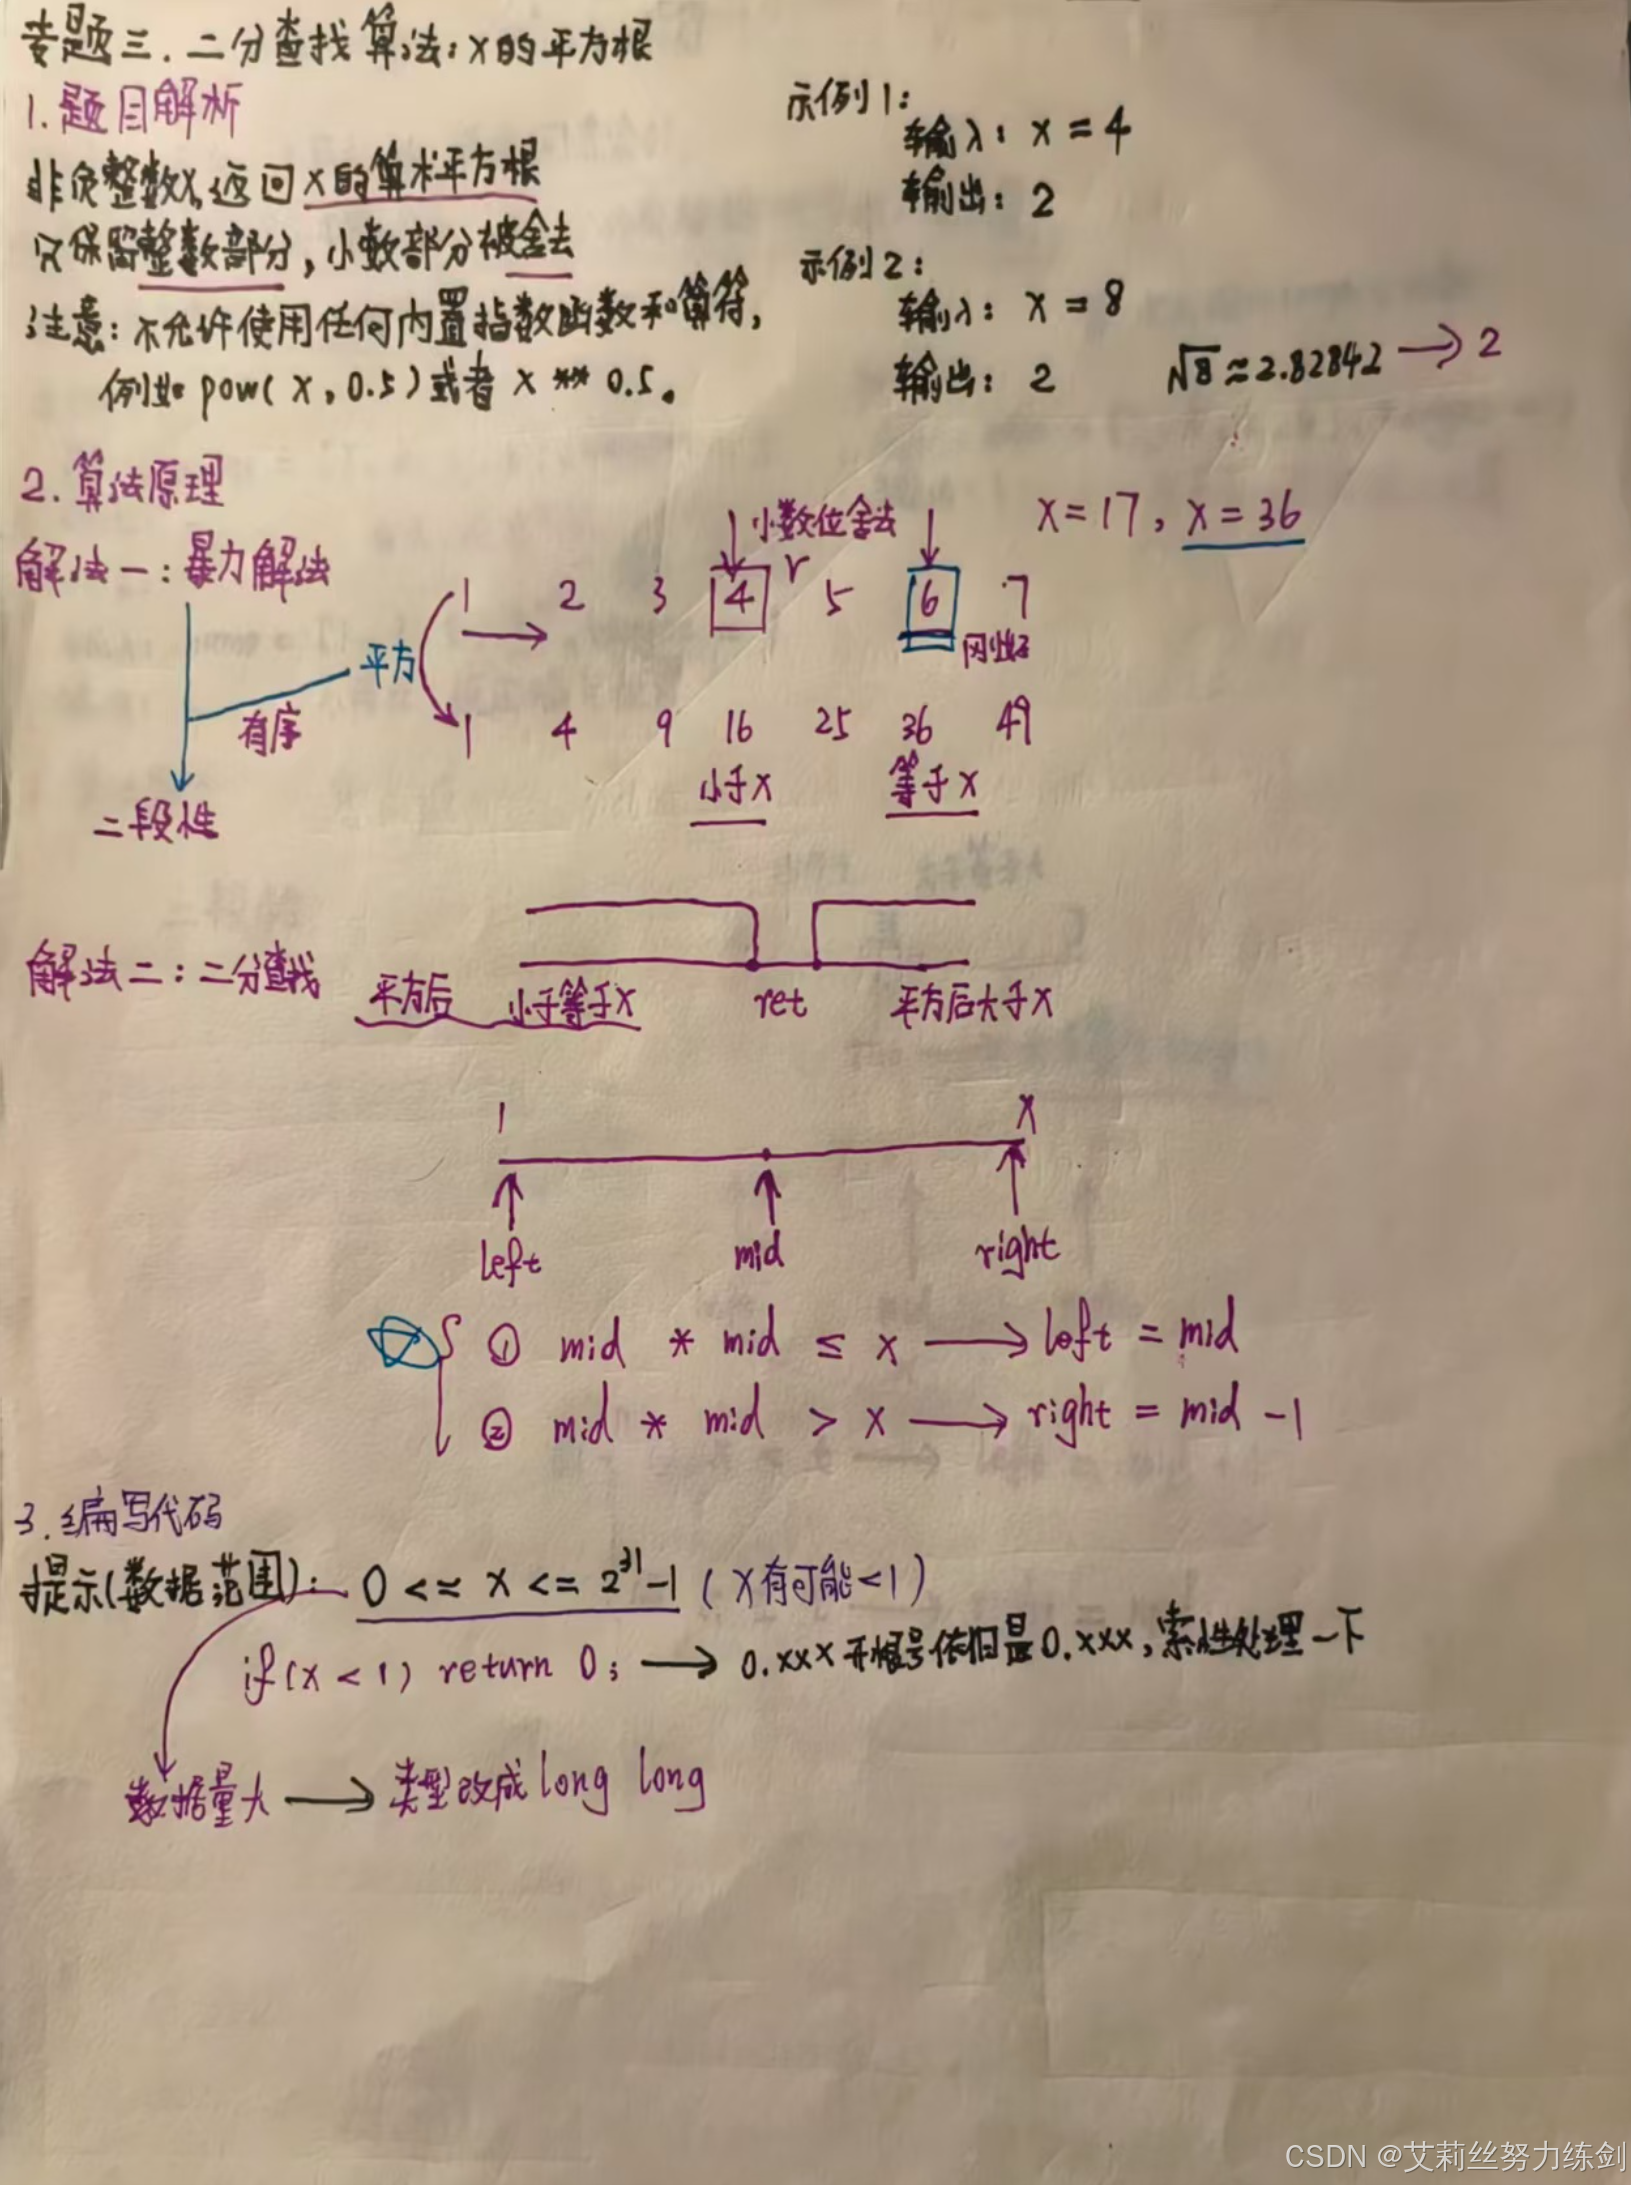 专题三.二分查找算法:x的平方根
1.题目解析
非负整数x,返回x的算术平方根
只保留整数部分,小数部分被舍去
注意:不允许使用任何内置指数函数和算符,
例如 pow(x,0.5)或者 x ** 0.5。
示例1:
输入: x = 4
输出: 2
示例2:
输入: x = 8
输出: 2
√8 ≈ 2.82842 → 2
2.算法原理
解法一:暴力解法
小数位舍去
x=17, x=36
1 2 3 4 r 5 6 7
刚出好
平方
有序
1 4 9 16 25 36 49
小于x 等于x
二段性
解法二:二分查找
平方后 小于等于x ret 平方后大于x
1 x
left mid right
① mid * mid ≤ x → left = mid
② mid * mid > x → right = mid -1
3.编写代码
提示(数据范围): 0 <= x <= 2³¹-1 (x有可能<1)
if(x < 1) return 0; → 0.xxx开根号依旧是0.xxx,索性处理一下
数据量大 → 类型改成 long long
CSDN @艾莉丝努力练剑